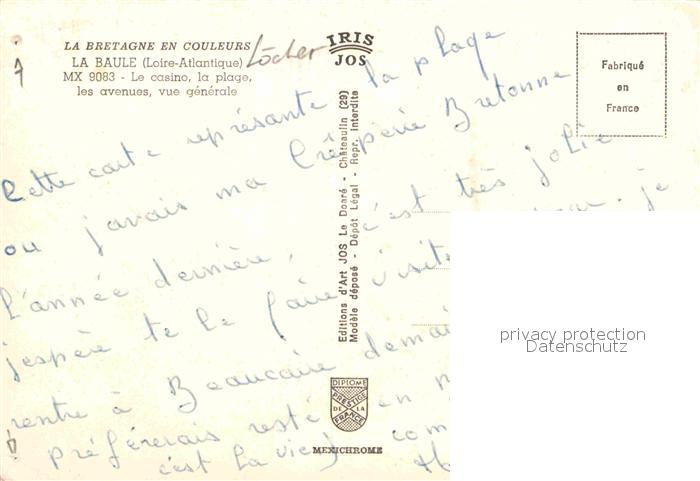 LA BRETAGNE EN COULEURS
LA BAULE (Loire-Atlantique)
MX 9083 - Le casino, la plage,
les avenues, vue générale
Locher
IRIS
JOS
Fabriqué
en
France
Cette carte représante la plage
ou javais ma Crêperie Bretonne
l'année dernière, c'est très jolie
j'espère te le faire visite je
rentre à Beaucaire demai
préférerais resté en
c'est la vie) com
Editions d'Art JOS Le Doaré - Châteaulin (29)
Modèle déposé - Dépôt Légal - Repr. interdite
privacy protection
Datenschutz
DIPLOME
PRESTIGE
DE LA
FRANCE
MEXICHROME